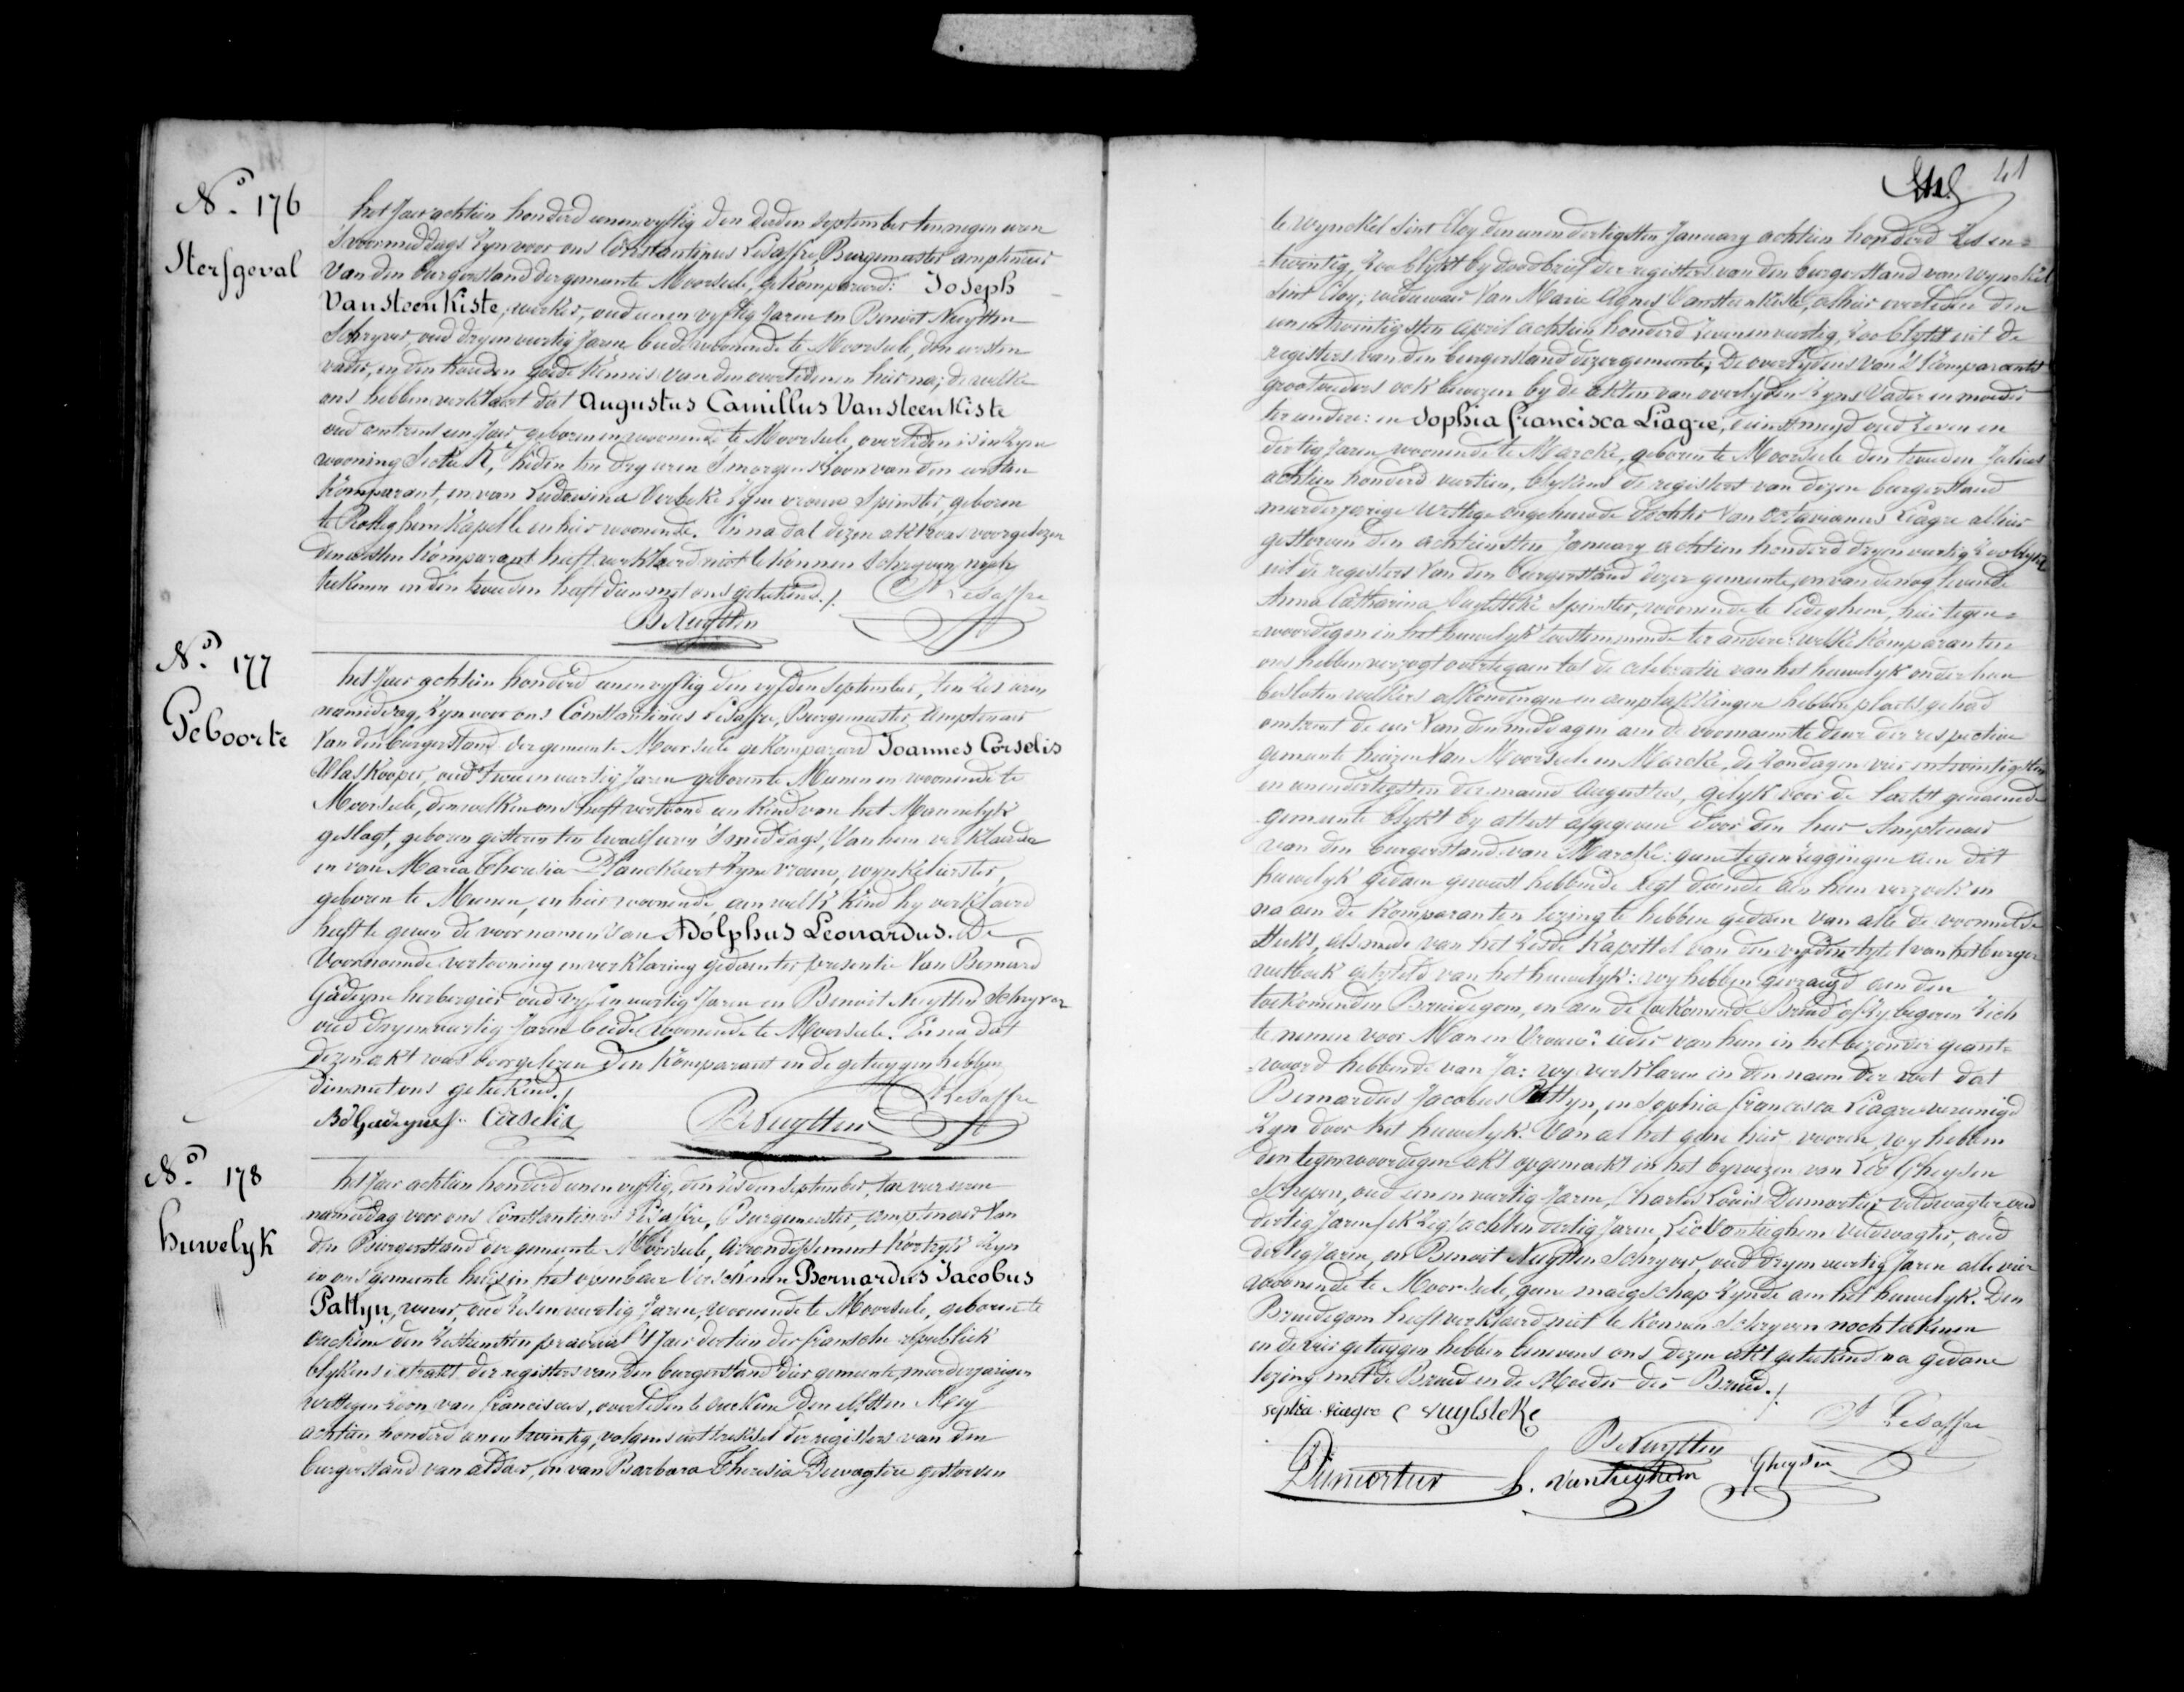 No. 176
Sterfgeval
het Jaer achtien honderd eenenvyftig den derden September ten negen uren
'svoormiddags Zyn voor ons Constantinus Lesaffre, Burgemeester amptenaer
Van den burgerstand der gemeente Moorseele, gekompareerd: Joseph
Vansteenkiste, werker, oud eenen vyftig Jaren en Benoit Nuytten
Schryver, oud dryenveertig Jaren beide woonende te Moorseele, den eersten
vader, en den tweeden goede kennis van den overledenen hierna; de welke
ons hebben verklaert dat Augustus Camillus Vansteenkiste
oud omtrent een Jaer, geboren en woonende te Moorseele, overleden is in Zyne
wooning Sectie K, heden ten dry uren 'smorgens Zoon van den eersten
Komparant, en van Ludovina Verbeke Zyne vrouw Spinster, geboren
te Rolleghem Kapelle en hier woonende. En na dat dezen akt was voorgelezen
den eersten Komparant heeft verklaerd niet te konnen Schryven nogh
teekenen en den tweeden heeft dien met ons geteekend./.
C Lesaffre
B Nuytten
No. 177
Geboorte
het Jaer achtien honderd eenenvyftig den vyfden September, ten zes uren
namiddag, Zyn voor ons Constantinus Lesaffre, Burgemeester, Amptenaer
Van den burgerstand der gemeente Moorseele gekompareerd Joannes Corselis
Vlaskooper, oud tweeenveertig Jaren geboren te Meenen en woonende te
Moorseele, den welken ons heeft vertoond een Kind van het Mannelyk
geslagt, geboren gisteren ten twaelf uren 'smiddags, Van hem verklaerder
en van Maria Theresia Planckaert Zyne vrouw, wynkelierster,
geboren te Meenen, en hier woonende, aen welk Kind hy verklaerd
heeft te geven de voornamen van Adolphus Leonardus. De
Voornoemde vertooning en verklaring gedaen ter presentie Van Bernard
Gadeyne herbergier oud vyf en veertig Jaren en Benoit Nuytten Schryver
oud dryenveertig Jaren beide woonende te Moorseele. En na dat
dezen akt was voorgelezen Den Komparant en de getuygen hebben
dien met ons geteekend./.
C Lesaffre
Bd Gadeyne J. Corselis B Nuytten
No. 178
huwelyk
het Jaer achtien honderd eenenvyftig, den zesden September, ten vier uren
namiddag voor ons Constantinus Lesaffre, Burgemeester, amptenaer Van
den Burgerstand der gemeente Moorseele, arrondissement Kortryk Zyn
in ons gemeente huis in het openbaer Verschenen Bernardus Jacobus
Pattyn, wever, oud zesenveertig Jaren, woonende te Moorseele, geboren te
Ouckene den zesthiensten prairial 't Jaer dertien der fransche republiek
blykens extrakt der registers van den burgerstand dier gemeente meerderjarigen
wettigen Zoon van Franciscus, overleden te Ouckene den elfsten Mey
achtien honderd eenen twintig, volgens uittreksel der registers van den
burgerstand van aldaer, en van Barbara Theresia Dewagtere gestorven
41
te Wynckel Sint Eloy den eenendertigsten January achtien honderd Zes en=
=twintig, zoo blykt by doodbrief der registers van den burgerstand van Wynckel
Sint Eloy; weduwaer Van Marie Agnes Vansteenkiste, alhier overleden den
eenentwintigsten April achtien honderd Zevenenveertig, Zoo blykt uit de
registers van den burgerstand dezer gemeente; De overlydens van 's Komparants
grootouders ook bewezen by de akten van overlyden Zyns Vader en moeder
ter eendere: en Sophia Francisca Liagre, dienstmeyd oud Zeven en
dertig Jaren, woonende te Marcke, geboren te Moorseele den tweeden Julius
achtien honderd veertien, blykens de registers van dezen burgerstand
meerderjarige wettige ongehuwde Dochter Van Octavianus Liagre alhier
gestorven den achtiensten January achtien honderd dryenveertig Zoo blykt
uit de registers Van den burgerstand dezer gemeente, en van de nog levende
Anna Catharina Vuylsteke Spinster, woonende te Ledeghem, hier tegen=
=woordig en in het huwelyk toestemmende ter andere: welke Komparanten
ons hebben verzogt overtegaen tot de celebratie van het huwelyk onder hun
besloten welkers afkondingen en aenplakkingen hebben plaets gehad
omtrent de uer Van den middag en aen de voornaemste deur der respective
gemeente huizen Van Moorseele en Marcke, de Zondagen vier entwintigsten
en eenendertigsten der maend Augustus, gelyk voor de laetst genaemde
gemeente blykt by attest afgegeven door den heer Amptenaer
van den burgerstand van Marcke: geene tegenzeggingen aen dit
huwelyk gedaen geweest hebbende regt doende aen hun verzoek en
na aen de Komparanten lezing te hebben gedaen van alle de voormelde
stuks, als mede van het Zesde Kapittel van den vyfden tytel van het burger
wetboek getyteld van het huwelyk: wy hebben gevraegd aen den
toekomenden Bruidegom, en aen de toekomende Bruid of zy begeren Zich
te nemen voor Man en Vrouw? ieder van hun in het bezonder geant=
=woord hebbende van Ja: wy verklaren in den naem der wet dat
Bernardus Jacobus Pattyn, en Sophia francisca Liagre vereenigd
Zyn door het huwelyk. Van al het gene hier vooren, wy hebben
den tegenwoordigen akt opgemaekt in het bywezen van Leo Gheysen
Schepen, oud eenenveertig Jaren, Charles Louis Dumortier veldwagter oud
dertig Jaren (ik Zeg) achtendertig Jaren, Leo Vantieghem Veldwagter, oud
dertig Jaren, en Benoit Nuytten Schryver, oud dryenveertig Jaren alle vier
woonende te Moorseele, geene maegschap Zynde aen het huwelyk. Den
Bruidegom heeft verklaerd niet te konnen Schryven noch teekenen
en de vier getuygen hebben benevens ons dezen akt geteekend na gedane
lezing met de Bruid en de Moeder der Bruid./.
sophia liagre C vuylsteke
C Lesaffre
B Nuytten
Dumortier L. Vantieghem Gheysen